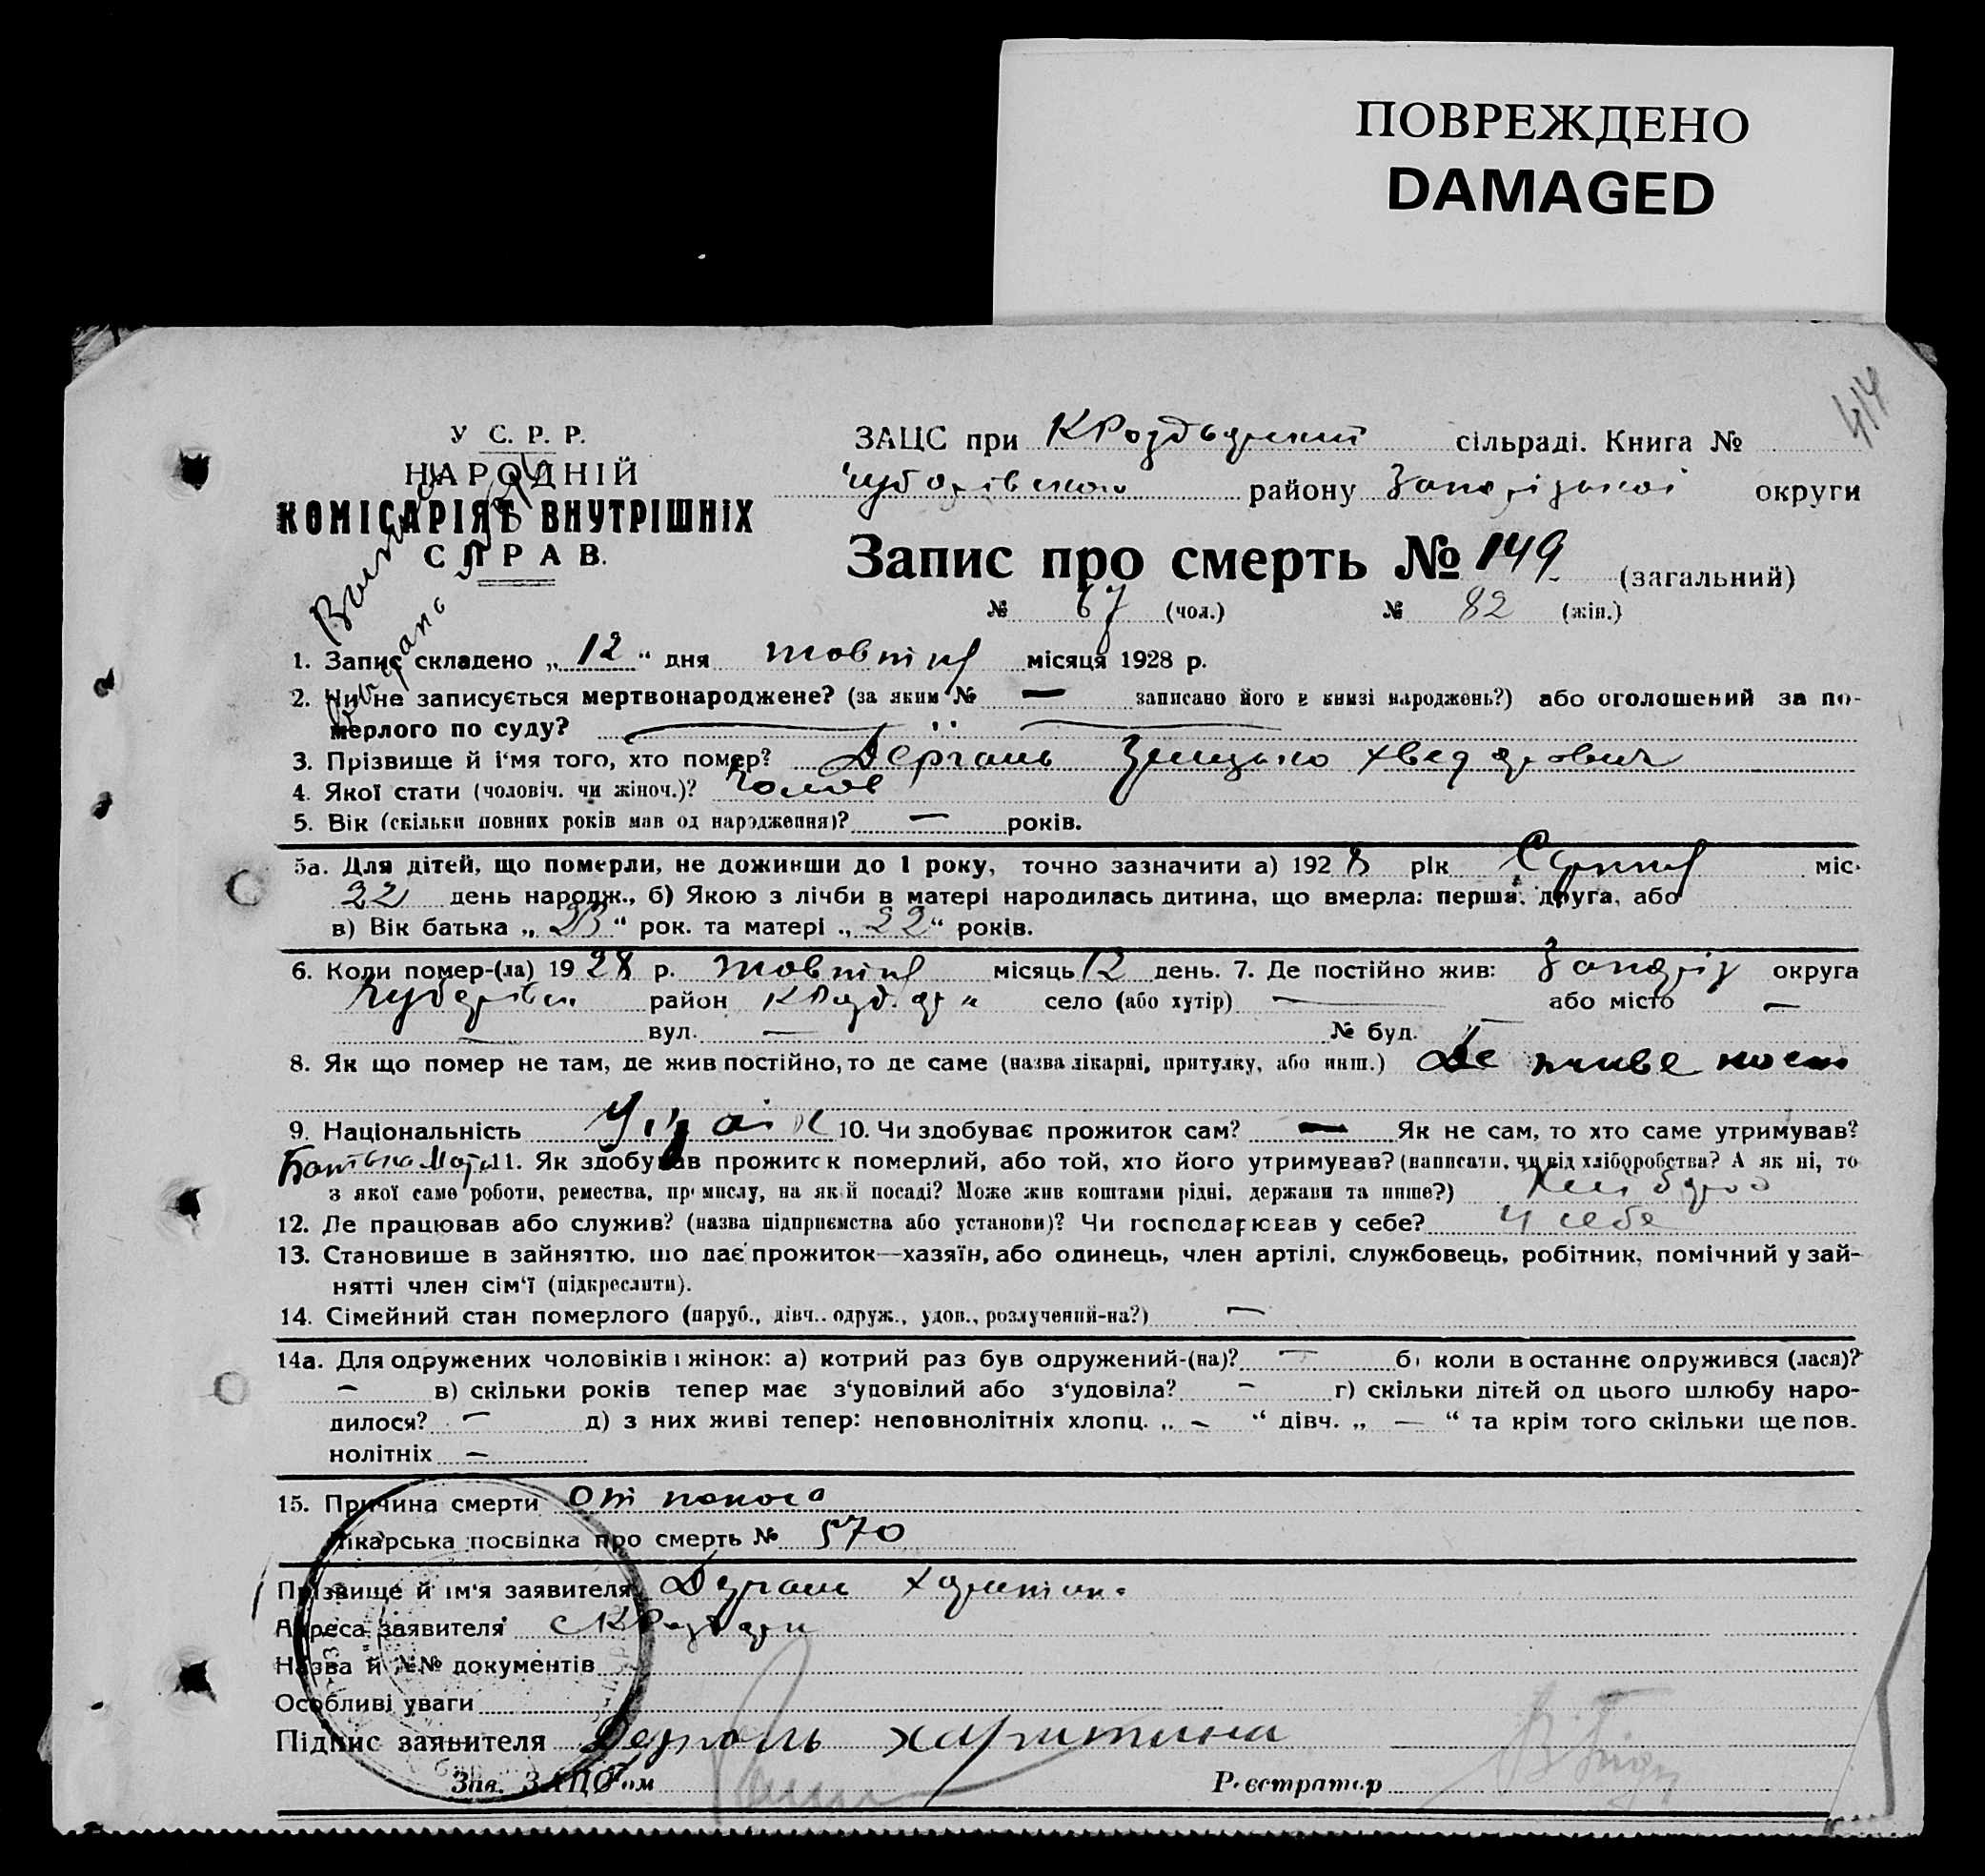 ПОВРЕЖДЕНО
DAMAGED
414
У С. Р. Р.
НАРОДНІЙ
КОМІСАРІЯТ ВНУТРІШНІХ
СПРАВ.
ЗАЦС при сільраді. Книга №
району округи
Запис про смерть № 149 (загальний)
№ 67 (чол.) № 82 (жін.)
1. Запис складено „ 12 “ дня жовтня місяця 1928 р.
2. Чи не записується мертвонароджене? (за яким № — записано його в книзі народжень?) або оголошений за по-
мерлого по суду?
3. Прізвище й і‘мя того, хто помер? Дергаль Грицько Хведорович
4. Якої стати (чоловіч. чи жіноч.)? Чолов
5. Вік (скільки повних років мав од народження)? — років.
5а. Для дітей, що померли, не доживши до 1 року, точно зазначити а) 1928 рік Серпня міс.
22 день народж., б) Якою з лічби в матері народилась дитина, що вмерла: перша, друга, або
в) Вік батька „ 23 “ рок. та матері „ 22 “ років.
6. Коли помер-(ла) 1928 р. жовтня місяць 12 день. 7. Де постійно жив: Запоріз округа
район село (або хутір) — або місто —
— вул. — № буд. —
8. Як що помер не там, де жив постійно, то де саме (назва лікарні, притулку, або инш.) Де живе
9. Національність Украін 10. Чи здобуває прожиток сам? — Як не сам, то хто саме утримував?
Батько Мати 11. Як здобував прожиток померлий, або той, хто його утримував? (написати, чи від хліборобства? А як ні, то
з якої саме роботи, ремества, промислу, на якій посаді? Може жив коштами рідні, держави та инше?) Хлібороб
12. Де працював або служив? (назва підприємства або установи)? Чи господарював у себе? У себе
13. Становище в зайняттю, що дає прожиток—хазяїн, або одинець, член артілі, службовець, робітник, помічний у зай-
нятті член сім‘ї (підкреслити).
14. Сімейний стан померлого (паруб., дівч.. одруж., удов., розлучений-на?) —
14а. Для одружених чоловіків і жінок: а) котрий раз був одружений-(на)? — б) коли в останнє одружився (лася)?
— в) скільки років тепер має з‘удовілий або з‘удовіла? — г) скільки дітей од цього шлюбу наро-
дилося? — д) з них живі тепер: неповнолітніх хлопц. „ — “ дівч. „ — “ та крім того скільки ще пов.
нолітніх —
15. Причина смерти От поноса
Лікарська посвідка про смерть № 570
Прізвище й ім‘я заявителя Дергаль Харитина
Адреса заявителя
Назва й №№ документів
Особливі уваги
Підпис заявителя Дергаль Харитина
Зав. ЗАЦС‘ом Реєстратор